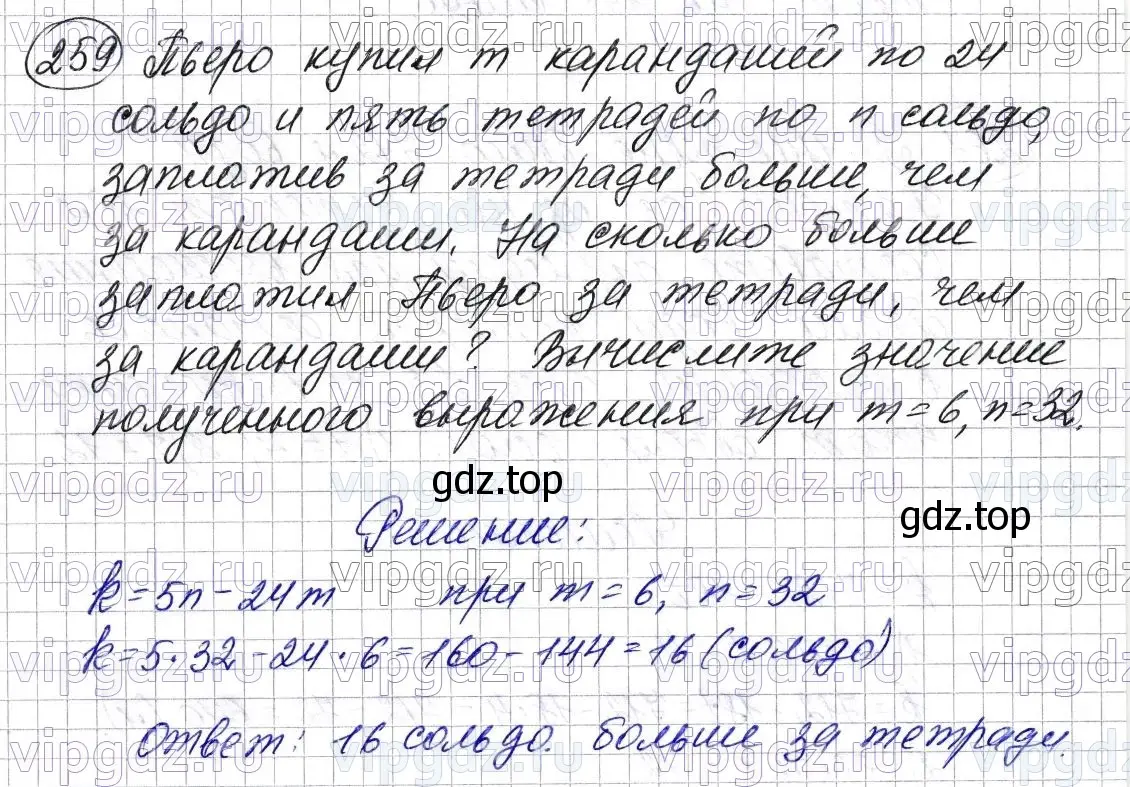 259 Пьеро купил m карандашей по 24
сольдо и пять тетрадей по n сольдо,
заплатив за тетради больше, чем
за карандаши. На сколько больше
заплатил Пьеро за тетради, чем
за карандаши? Вычислите значение
полученного выражения при m=6, n=32.
gdz.top
gdz.top
Решение:
k=5n-24m при m=6, n=32
k=5·32-24·6=160-144=16 (сольдо)
Ответ: 16 сольдо больше за тетради.
vipgdz.ru